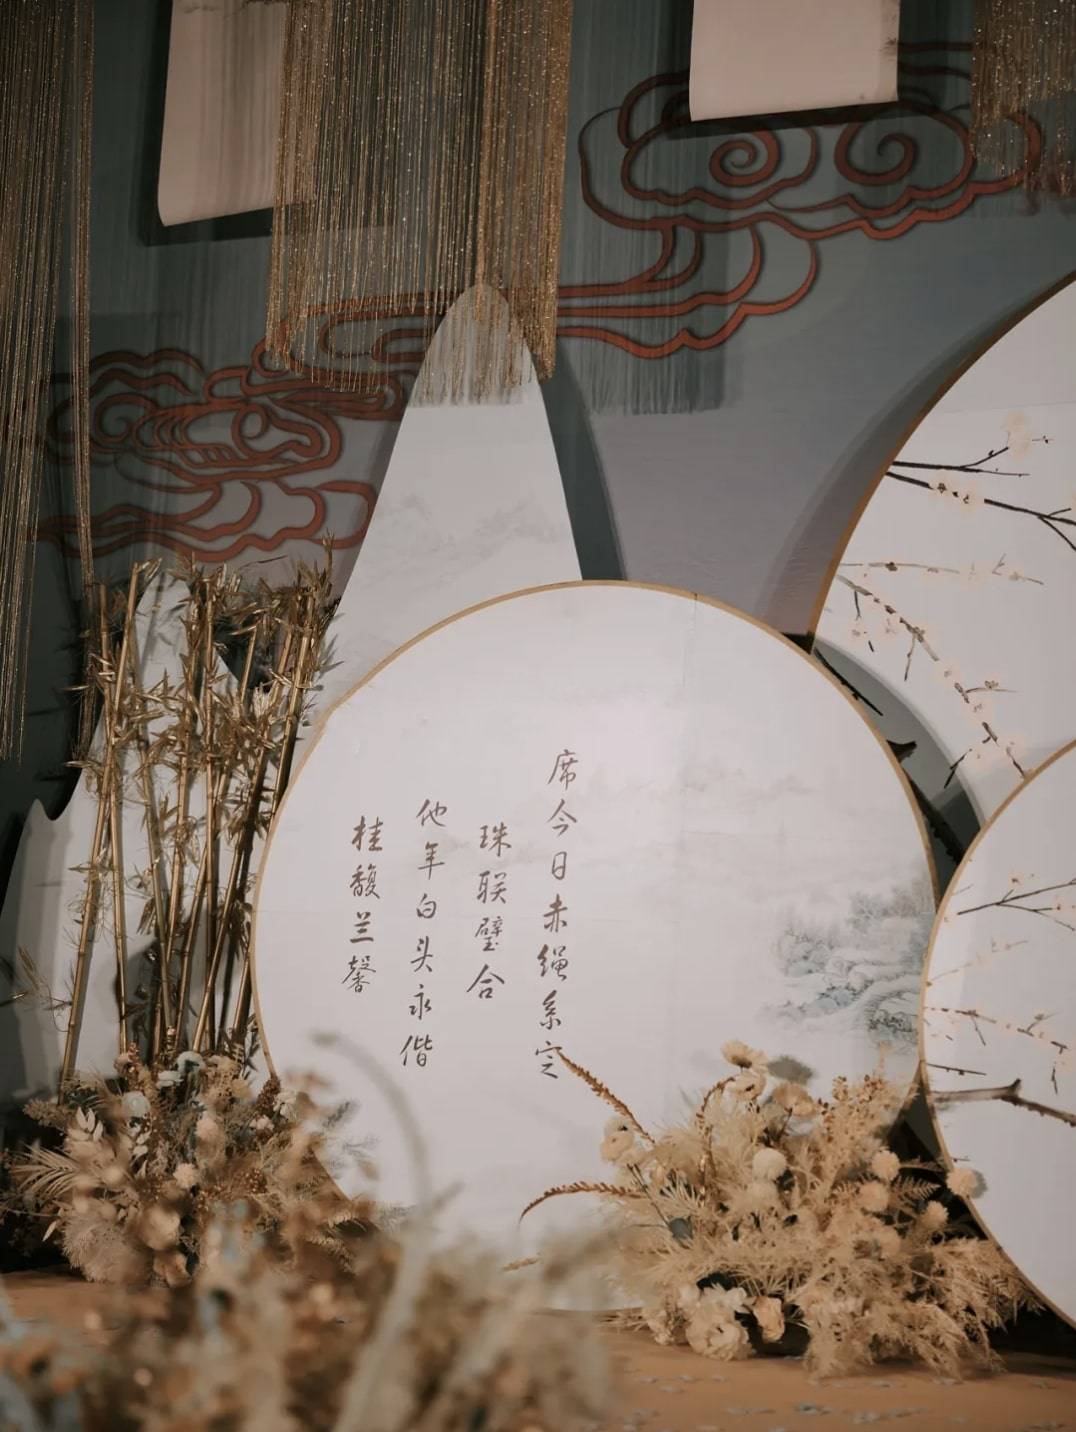 席今日赤绳系定
珠联璧合
他年白头永偕
桂馥兰馨